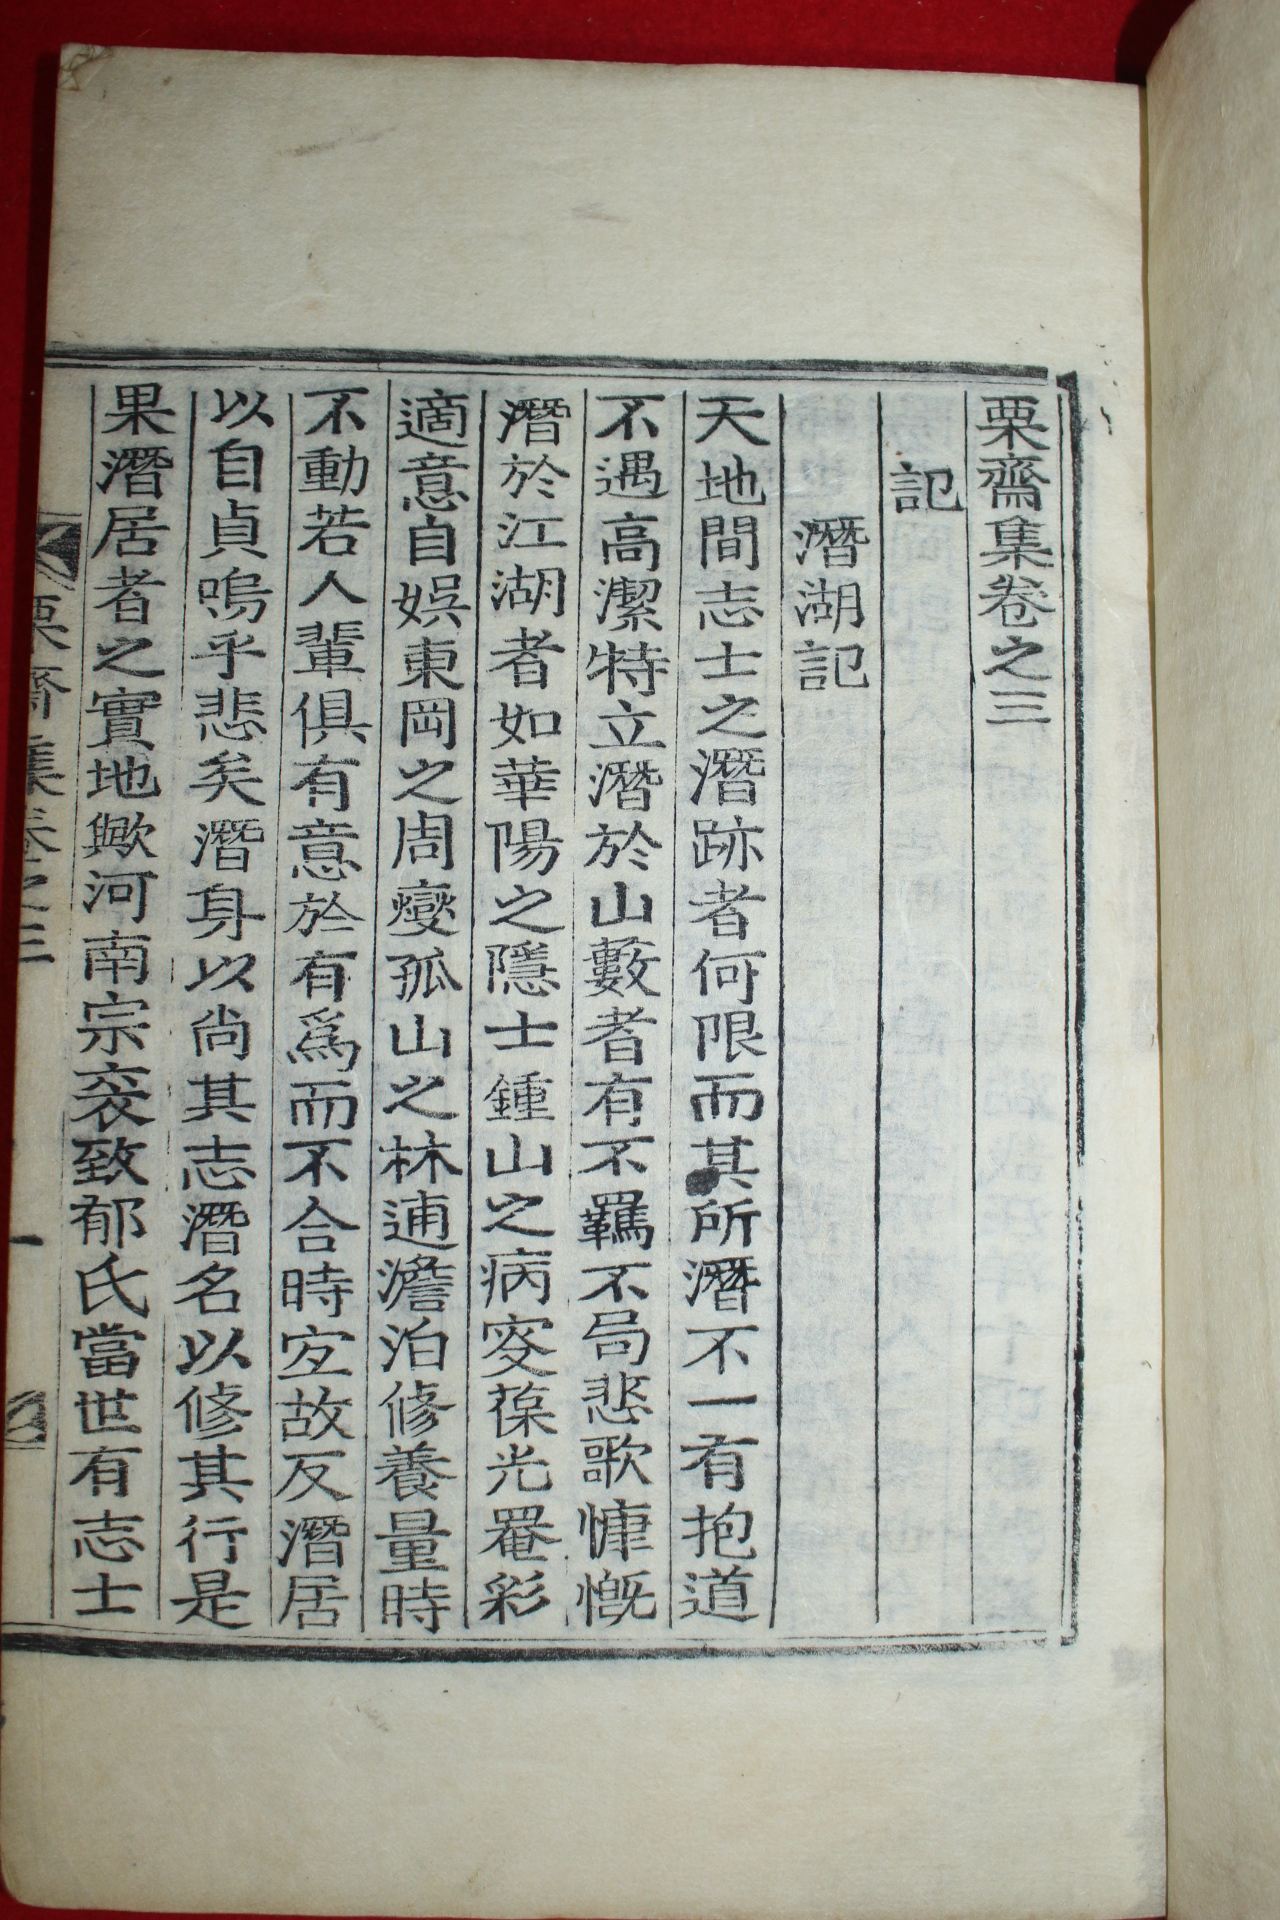 栗齋集卷之三
記
潛湖記
天地間志士之潛跡者何限而其所潛不一有抱道
不遇高潔特立潛於山藪者有不羈不局悲歌慷慨
潛於江湖者如華陽之隱士鍾山之病叜葆光罨彩
適意自娛東岡之周燮孤山之林逋澹泊修養量時
不動若人輩俱有意於有爲而不合時宜故反潛居
以自貞嗚乎悲矣潛身以尙其志潛名以修其行是
果潛居者之實地歟河南宗衮致郁氏當世有志士
栗齋集卷之三 一